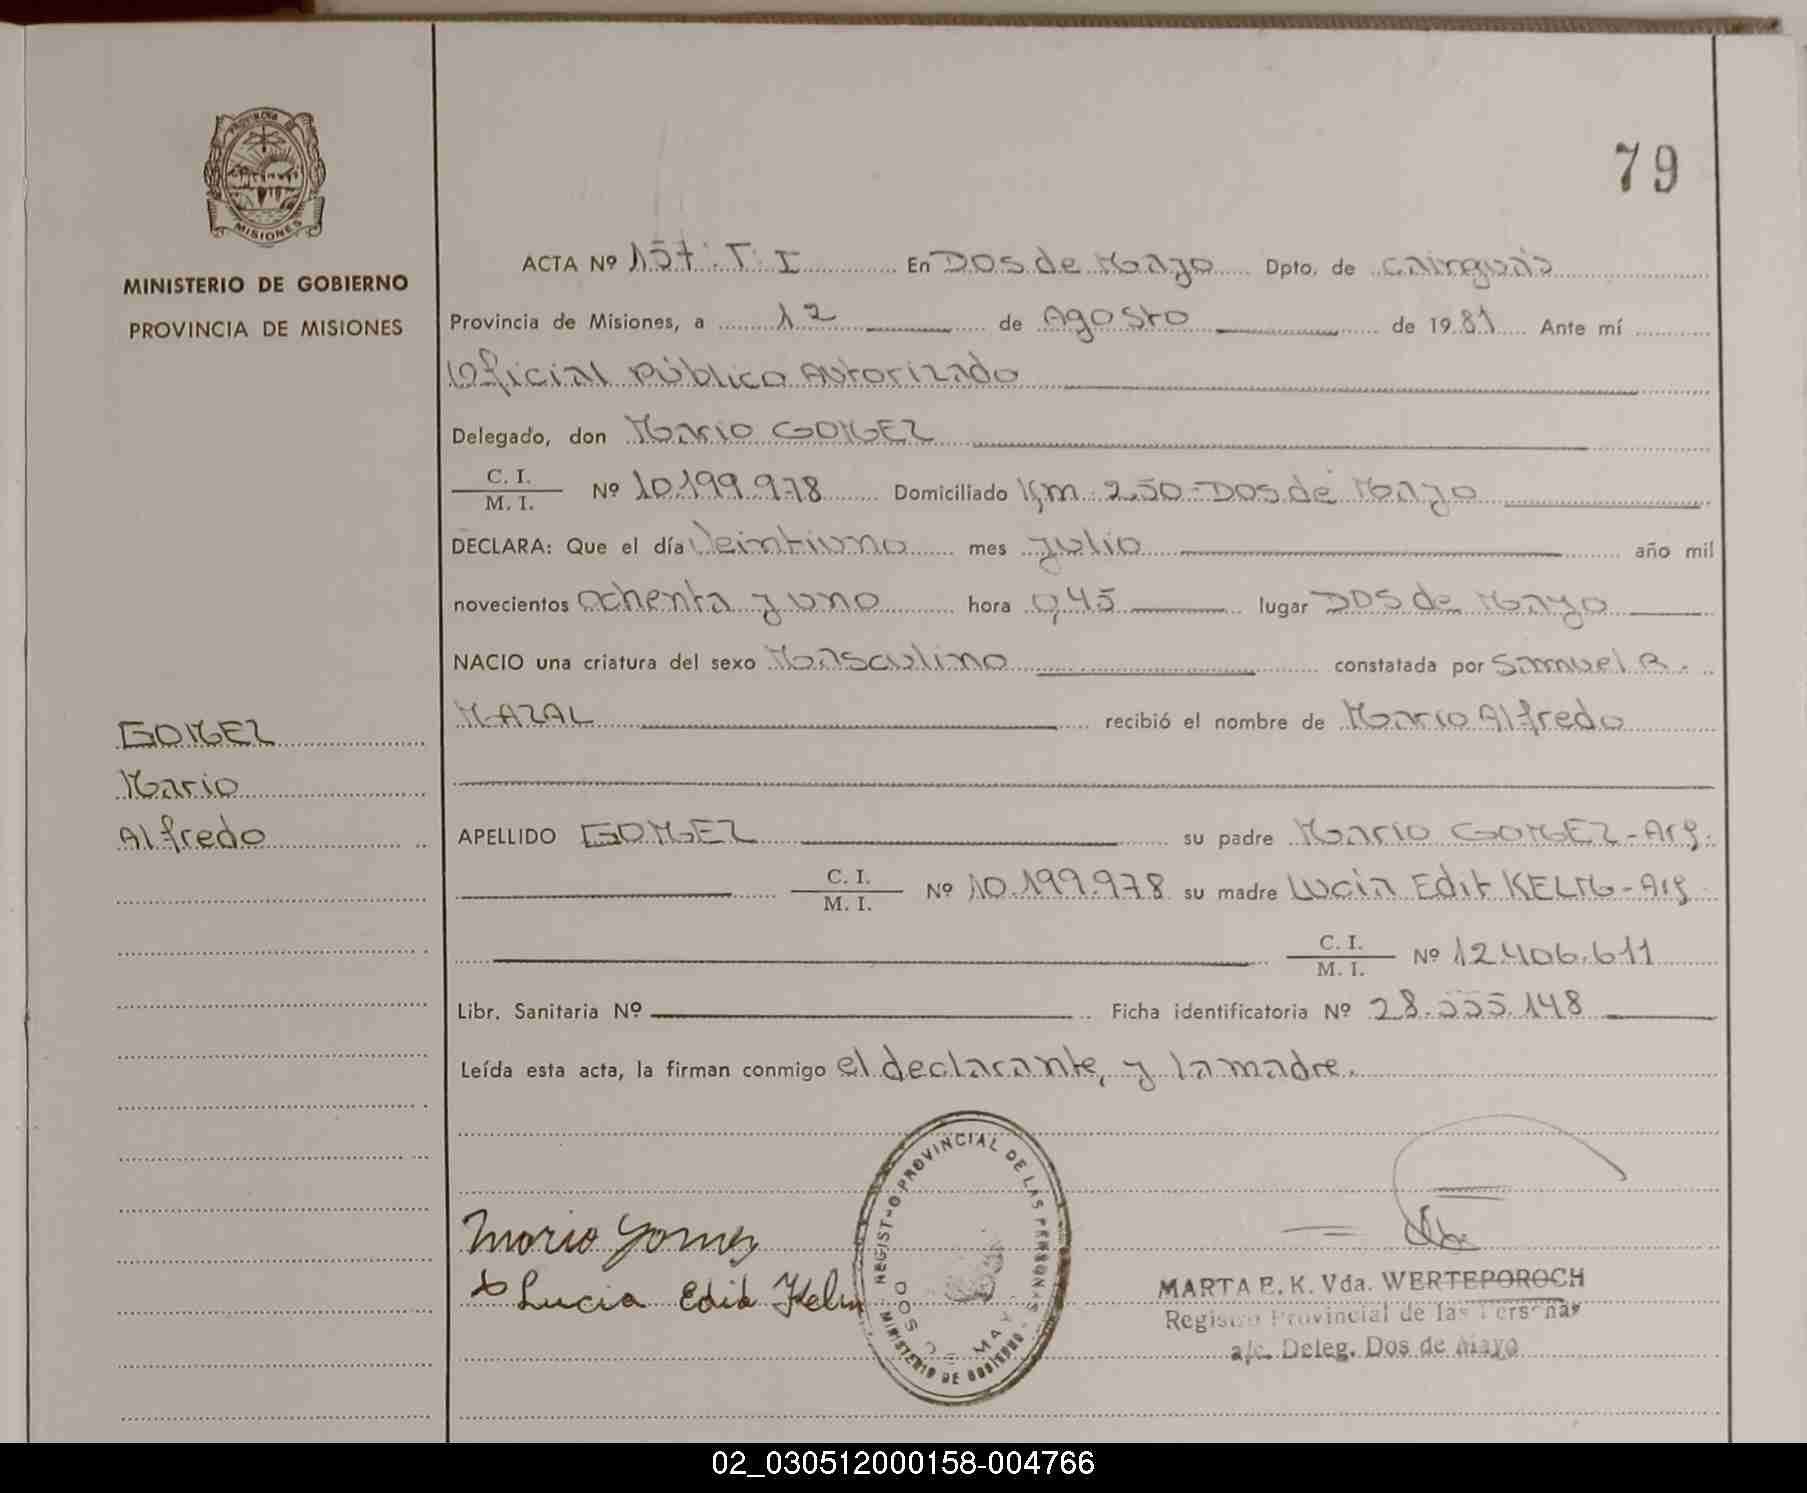 PROVINCIA DE
MISIONES
MINISTERIO DE GOBIERNO
PROVINCIA DE MISIONES
79
ACTA Nº 157. T. I En Dos de Mayo Dpto. de Cainguás
Provincia de Misiones, a 12 de Agosto de 1981 Ante mí
Oficial Público Autorizado
Delegado, don Mario GOMEZ
C. I.
M. I. Nº 10.199.978 Domiciliado Km. 250-Dos de Mayo
DECLARA: Que el día Veintiuno mes Julio año mil
novecientos ochenta y uno hora 0,45 lugar Dos de Mayo
NACIO una criatura del sexo Masculino constatada por Samuel R.
MAZAL recibió el nombre de Mario Alfredo
GOMEZ
Mario
Alfredo
APELLIDO GOMEZ su padre Mario GOMEZ-Arg.
C. I.
M. I. Nº 10.199.978 su madre Lucia Edit KELM-Arg.
C. I.
M. I. Nº 12.406.611
Libr. Sanitaria Nº Ficha identificatoria Nº 28.555.148
Leída esta acta, la firman conmigo el declarante, y la madre.
Mario Gomez
Lucia Edid Kelm
REGISTRO PROVINCIAL DE LAS PERSONAS
MINISTERIO DE GOBIERNO
DOS DE MAYO
MARTA E. K. Vda. WERTEPOROCH
Registro Provincial de las Personas
a/c. Deleg. Dos de Mayo
02_030512000158-004766